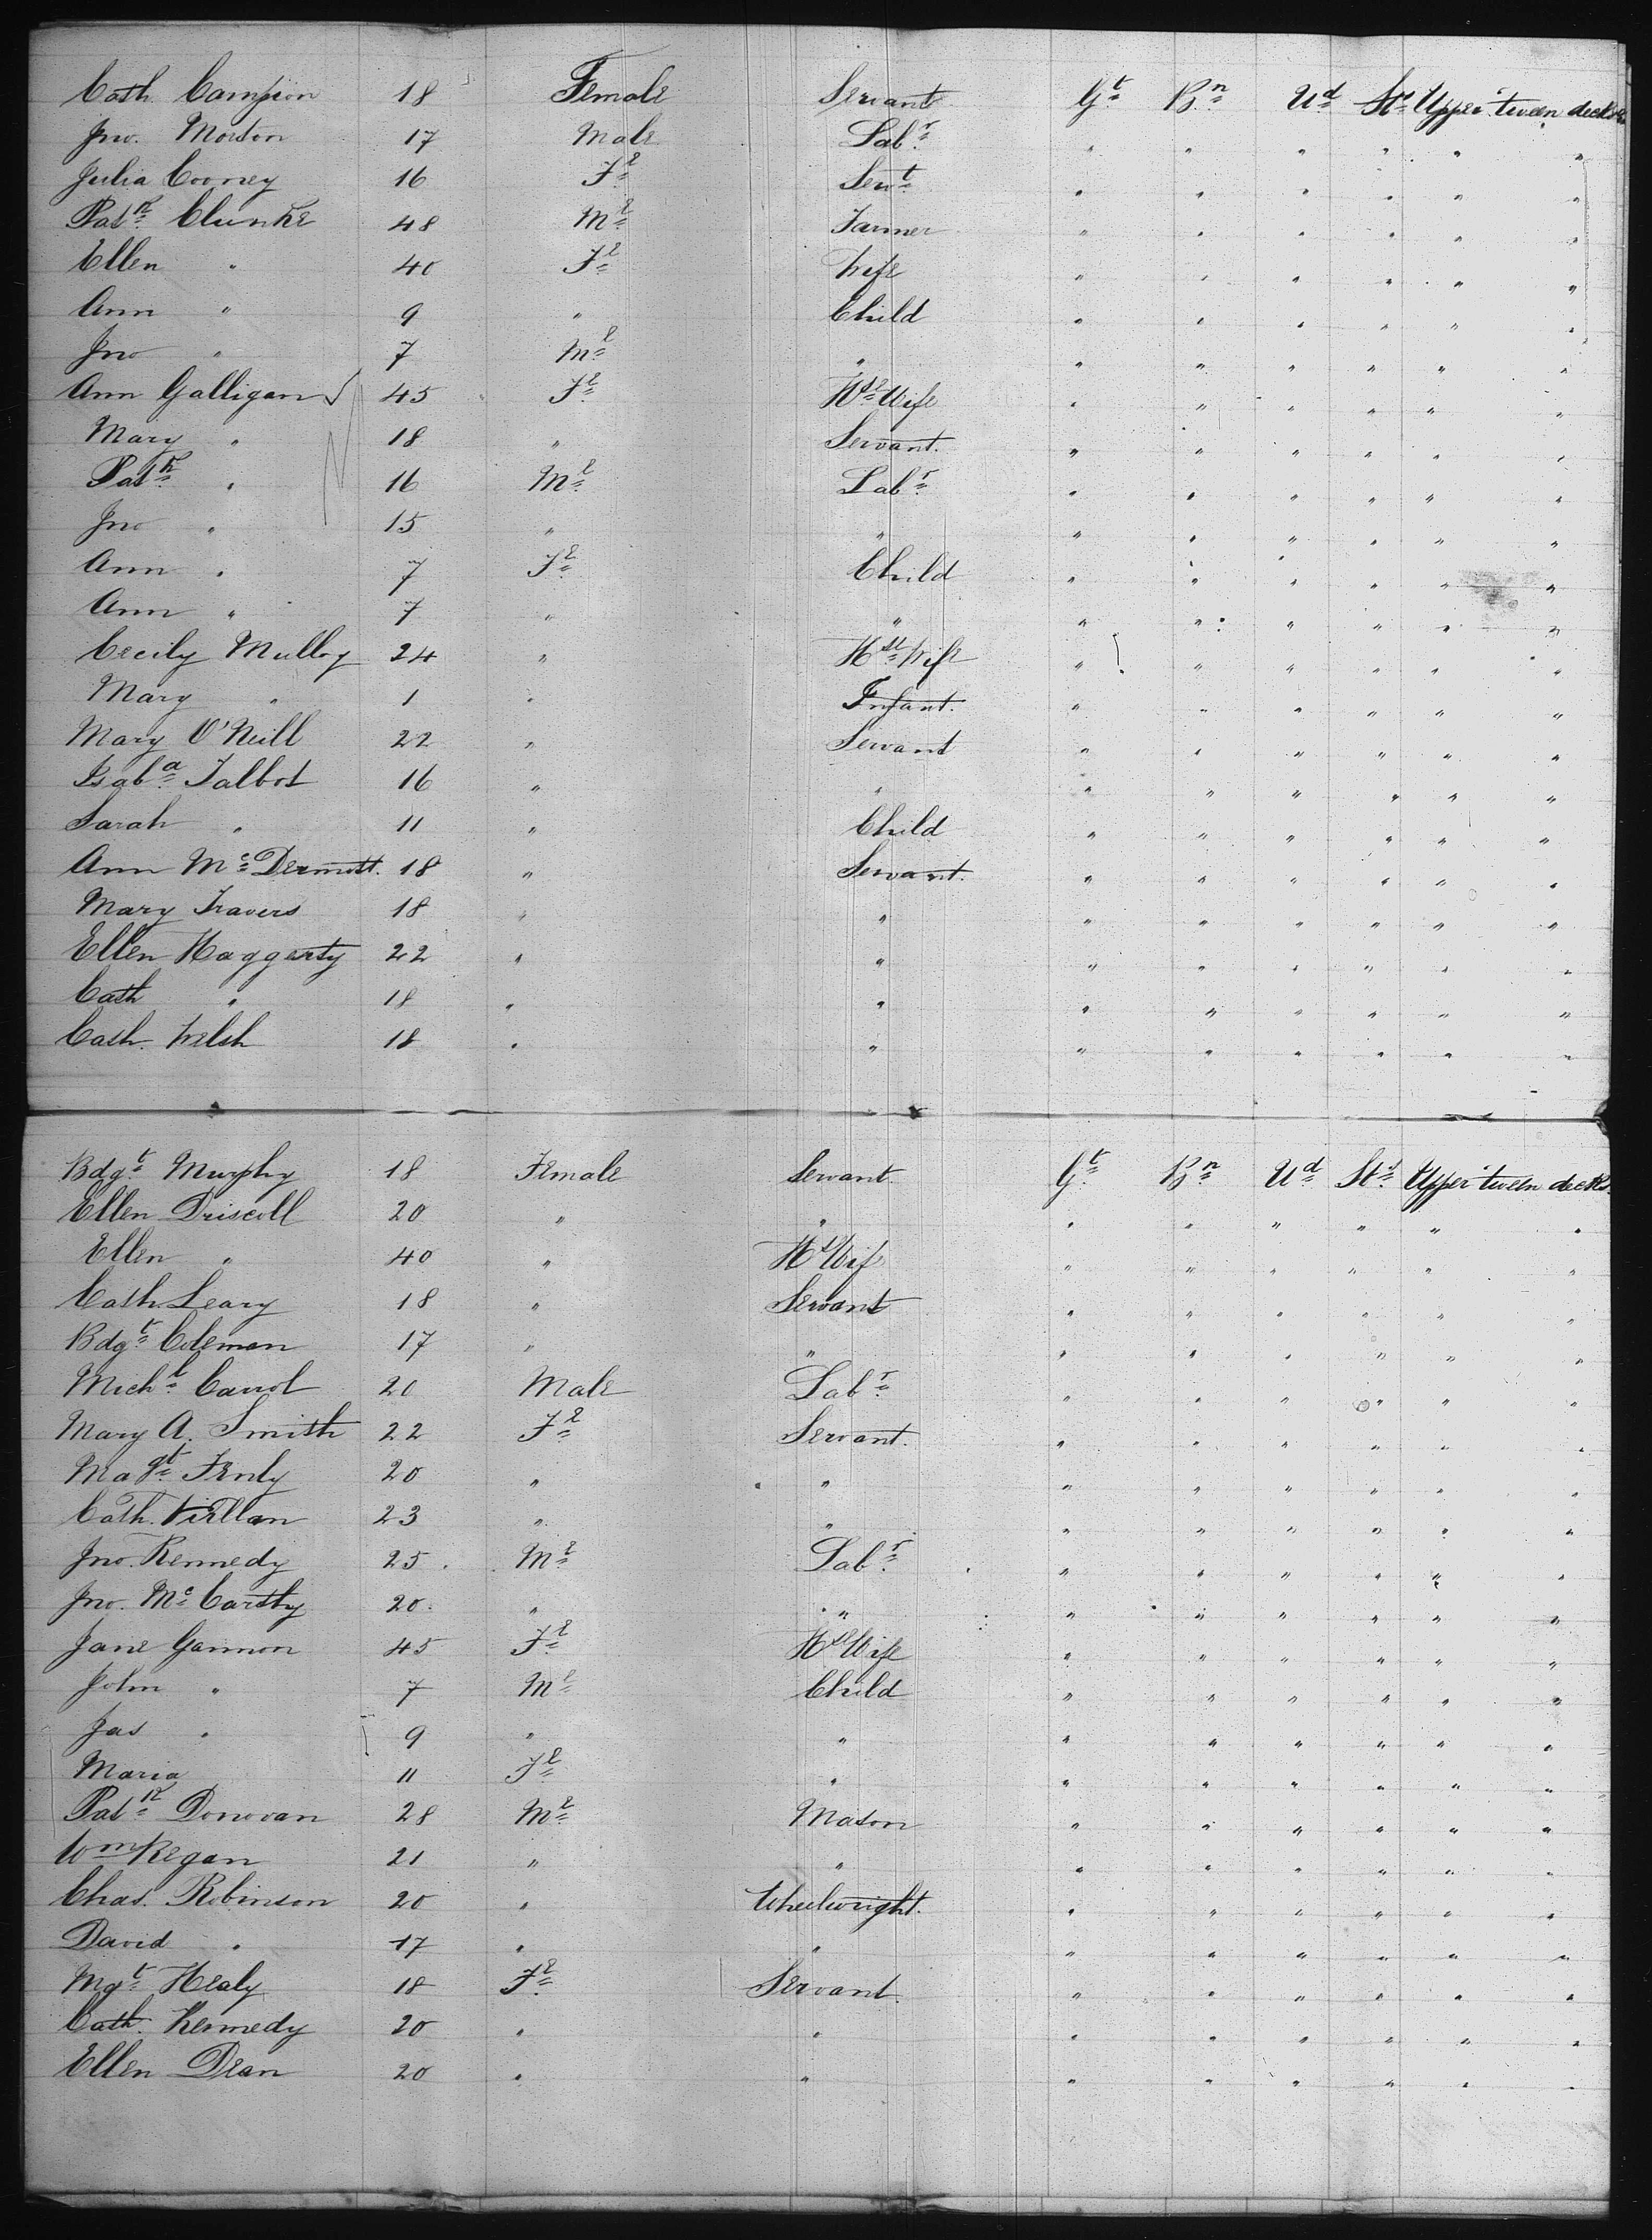 Cath. Campion 18 Female Servant Gt Bn Ud Sts Upper tween decks
Jno. Morton 17 Male Labr " " " " " "
Julia Cooney 16 Fe Servt " " " " " "
Patk Clunke 48 Me Farmer " " " " " "
Ellen " 40 Fe Wife " " " " " "
Ann " 9 " Child " " " " " "
Jno " 7 Me " " " " " " "
Ann Galligan √ 45 Fe Hse Wife " " " " " "
Mary " 18 " Servant. " " " " " "
Patk " 16 Me Labr " " " " " "
Jno " 15 " " " " " " " "
Ann " 7 Fe Child " " " " " "
Ann " 7 " " " " " " " "
Cecily Mulloy 24 " Hse Wife " " " " " "
Mary " 1 " Infant. " " " " " "
Mary O'Neill 22 " Servant " " " " " "
Isaba Talbot 16 " " " " " " " "
Sarah " 11 " Child " " " " " "
Ann Mc Dermott. 18 " Servant. " " " " " "
Mary Travers 18 " " " " " " " "
Ellen Haggerty 22 " " " " " " " "
Cath " 18 " " " " " " " "
Cath. Welsh 18 " " " " " " " "
Bdgt Murphy 18 Female Servant. Gt Bn Ud Sts Upper tween decks.
Ellen Driscoll 20 " " " " " " " "
Ellen " 40 " He Wife " " " " " "
Cath. Leary 18 " Servant " " " " " "
Bdgt Coleman 17 " " " " " " " "
Michl Carrol 20 Male Labr " " " " " "
Mary A. Smith 22 Fe Servant. " " " " " "
Magt Fenly 20 " " " " " " " "
Cath. 23 " " " " " " " "
Jno. Kennedy 25 Me Labr " " " " " "
Jno. Mc Carthy 20 " " " " " " " "
Jane Gannon 45 Fe Hse Wife " " " " " "
John " 7 Me Child " " " " " "
Jas " 9 " " " " " " " "
Maria 11 Fe " " " " " " "
Patk Donovan 28 Me Mason " " " " " "
Wm Regan 21 " " " " " " " "
Chas. Robinson 20 " Wheelwright. " " " " " "
David " 17 " " " " " " " "
Mgt Healy 18 Fe Servant. " " " " " "
Cath. Kennedy 20 " " " " " " " "
Ellen Dean 20 " " " " " " " "